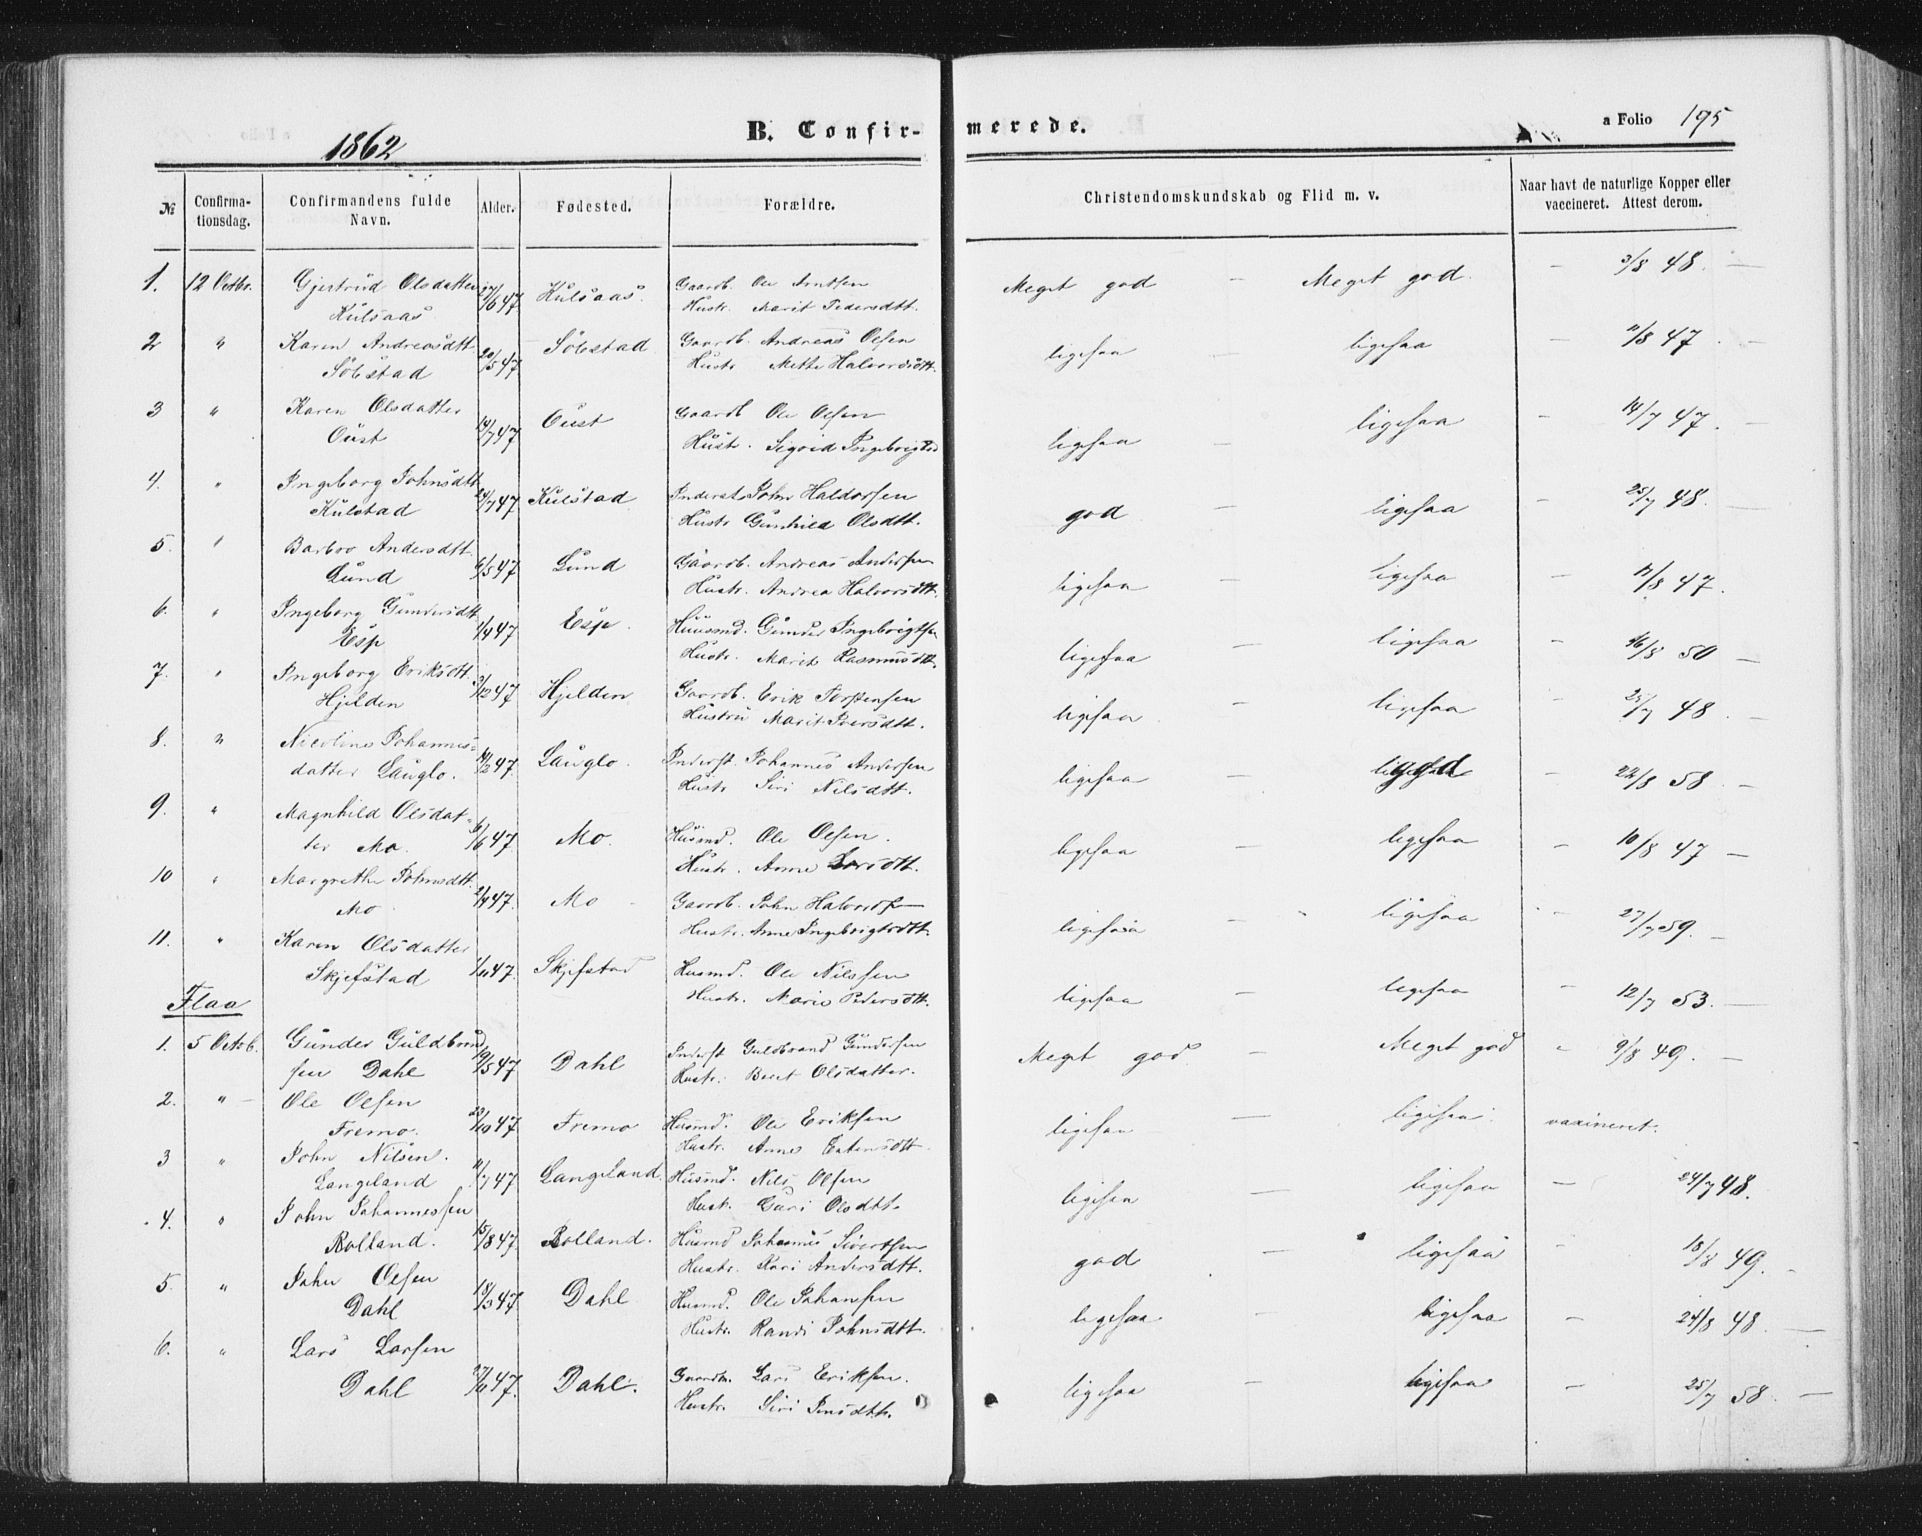 1862
B. Confir-merede.
a Folio 195
№ Confirmationsdag. Confirmandens fulde Navn. Alder. Fødested. Forældre. Christendomskundskab og Flid m. v. Naar havt de naturlige Kopper eller vaccineret. Attest derom.
1. 12 Octbr. Gjertrud Olsdatter 27/6 47 Kulsaas. Gaardb. Ole Arntsen Meget god — Meget god. — 3/8 48. —
Kulsaas. Hustr. Marit Pedersdtt.
2 " Karen Andreasdtt 20/5 47 Söbstad Gaardb. Andreas Olsen ligesaa — ligesaa — 11/8 47. —
Söbstad Hustr Mette Halvorsdtt.
3 " Karen Olsdatter 14/7 47 Oust Gaardb Ole Olsen ligesaa — ligesaa — 14/7 47. —
Oust Hustr. Sigrid
4. " Ingeborg Johnsdtt 24/7 47 Kulstad Inderst John Haldorsen god — ligesaa — 25/7 48. —
Kulstad Hustr Gunhild Olsdtt.
5. " Barbro Andersdtt. 6/5 47 Lund Gaardb. Andreas Andersen ligesaa — ligesaa — 11/8 47.
Lund Hustr. Andrea Halvorsdtt.
6. " Ingeborg Gundersdtt 1/4 47 Esp. Huusmd. Gunder Ingebrigtsen ligesaa — ligesaa — 16/8 50 —
Esp Hustr. Marit Rasmusdtt.
7. " Ingeborg Eriksdtt. 3/12 47 Hjelden Gaardb. Erik Torstensen ligesaa — ligesaa — 25/7 48. —
Hjelden Hustru Marit Iversdtt.
8. " Nicoline Johannes- 14/2 47 Lauglo. Inderst. Johannes Andersen ligesaa — god — 22/8 58. —
datter Lauglo. Hustr Siri Nilsdtt.
9. " Magnhild Olsdat- 6/6 47. Mo. Husmd. Ole Olsen. ligesaa — ligesaa — 10/8 47 —
ter Mo. Hustr. Anne Larsdtt.
10 " Margrethe Johnsdtt. 2/4 47. Mo Gaardb. John Halvorsen ligesaa — ligesaa — 27/7 59. —
Mo Hustr. Anne Ingebrigtsdtt.
11. " Karen Olsdatter 47. Skjefstad Husmd. Ole Nilssen ligesaa — ligesaa — 12/7 53. —
Skjefstad Hustr. Marie Pedersdtt.
Flaa
1. 5 Octb. Gunder Guldbrand 19/5 47 Dahl Inderst Guldbrand Gundersen Meget god. — Meget god " 9/8 49. —
sen Dahl Hustr. Beret Olsdatter.
2. " — Ole Olsen 23/10 47 Fremo Husmd. Ole Eriksen ligesaa — ligesaa. vaxineret.
Fremo. Hustr. Anne
3 " John Nilsen. 11/7 47 Langeland. Husmd. Nils Olsen ligesaa — ligesaa — 24/7 48.
Langeland Hustr. Guri Olsdtt.
4. " John Johannessen 15/8 47. Rolland. Husmd Johannes Sivertsen god — ligesaa 18/8 49. —
Rolland. Hustr. Kari Andersdtt.
5. " John Olsen 18/3 47. Dahl Husmd. Ole Johansen ligesaa — ligesaa — 24/8 48. —
Dahl Hustr. Randi Johnsdtt.
6. " Lars Larsen 47. Dahl. Gaardb. Lars Eriksen. ligesaa — ligesaa — 25/7 58. —
Dahl Hustr. Siri Jensdtt.